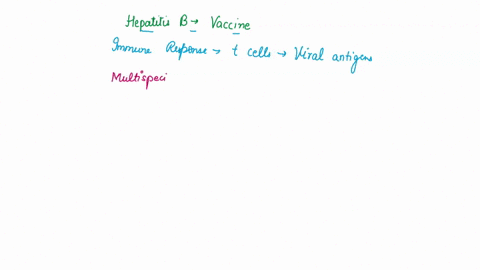 Hepatitis B → Vaccine
Immune Response → t cells → Viral antigens
Multispeci